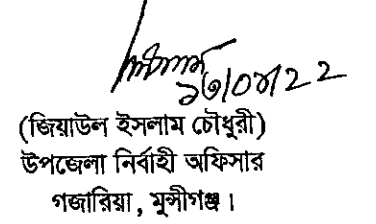 (জিয়াউল ইসলাম চৌধুরী)
উপজেলা নির্বাহী অফিসার
গজারিয়া, মুন্সীগঞ্জ।